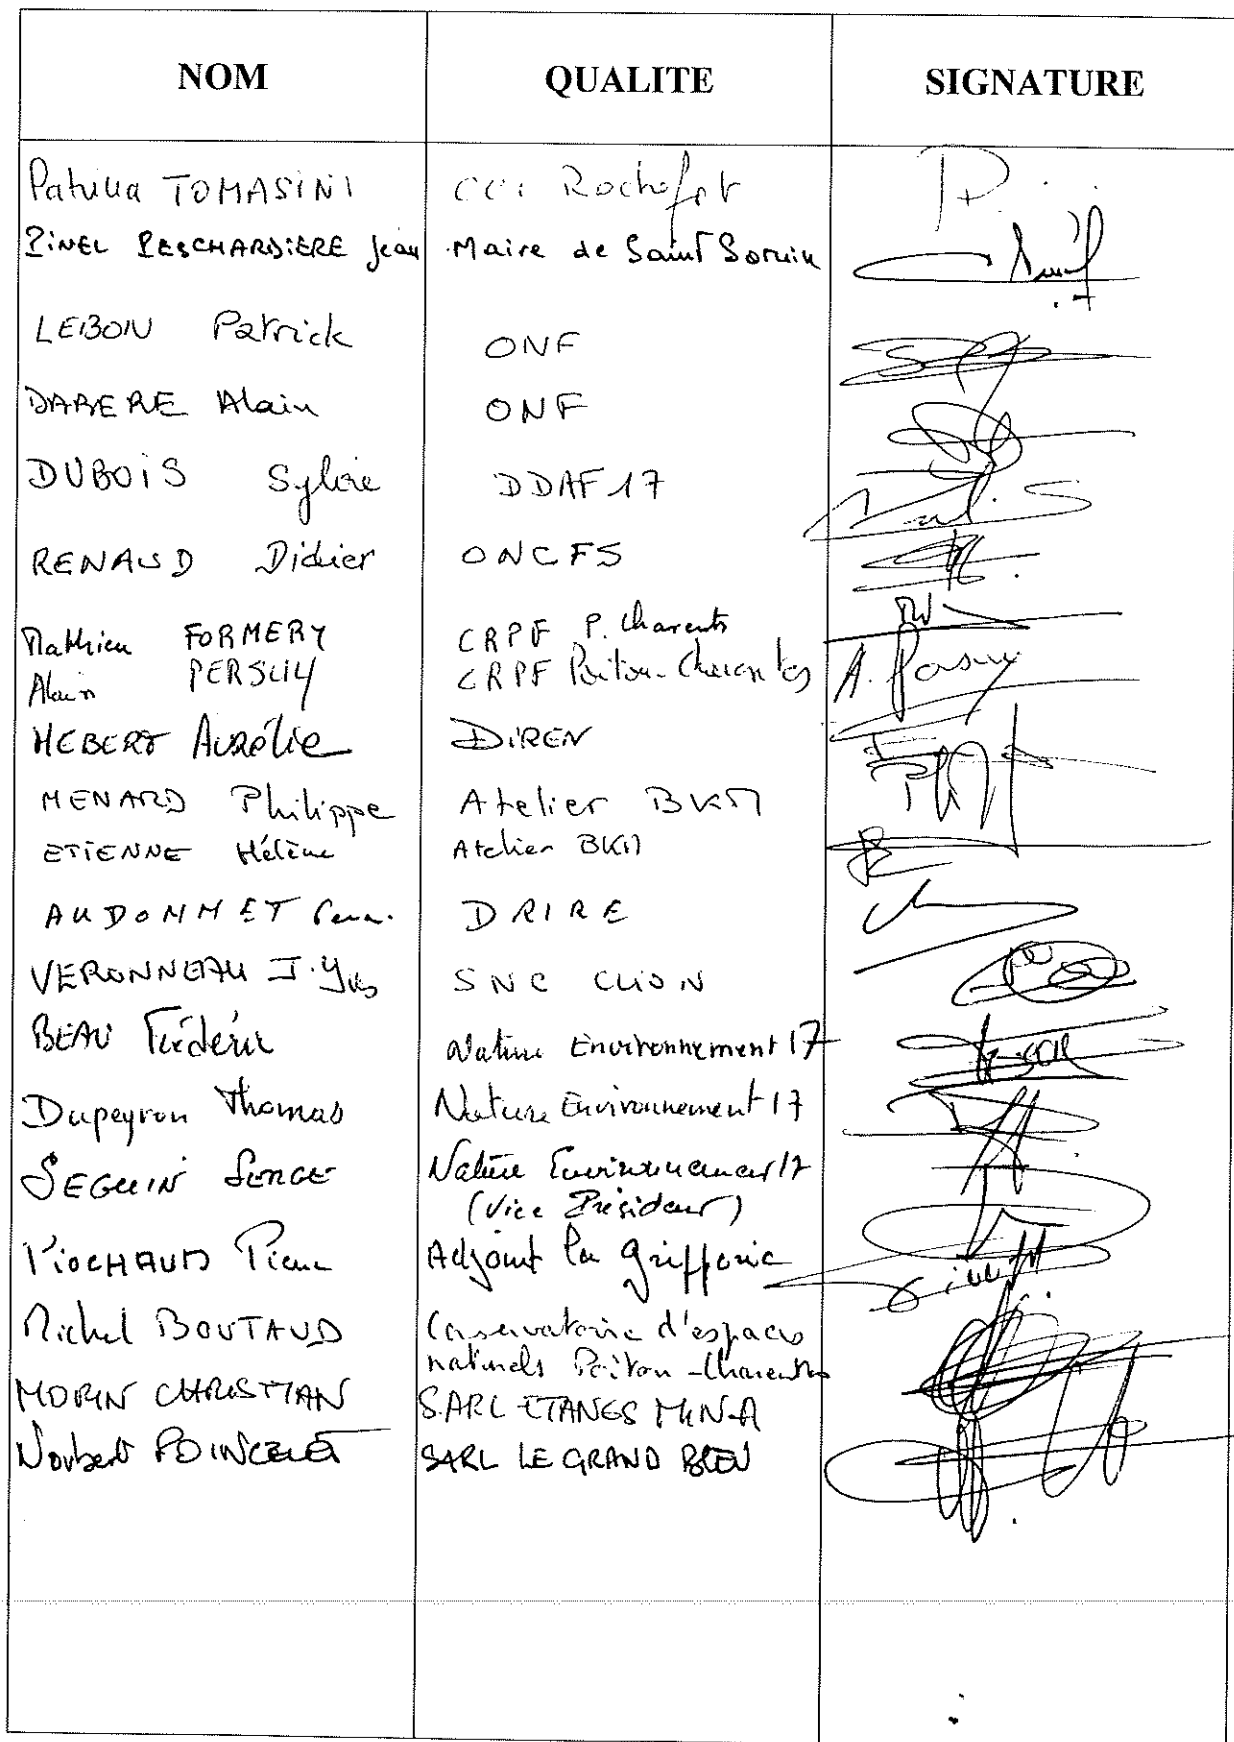 NOM QUALITE SIGNATURE
TOMASINI CCI Rochefort
PINEL DESCHARDIERE Jean Maire de Saint Sornin
LEBON Patrick ONF
DABERE Alain ONF
DUBOIS Sylvie DDAF 17
RENAUD Didier ONCFS
Mathieu FORMERY CRPF P. Charentes
Alain PERSUY CRPF Poitou-Charentes A. Persuy
HEBERT Aurélie DIREN
MENARD Philippe Atelier BKM
ETIENNE Hélène Atelier BKM
AUDONNET DRIRE
VERONNEAU J. Yves SNC CLION
BEAU Frédéric Nature Environnement 17
Dupeyron Thomas Nature Environnement 17
SEGUIN SERGE Nature Environnement 17
(Vice Président)
PIOCHAUD Pierre Adjoint la gripperie
Michel BOUTAUD Conservatoire d'espaces
naturels Poitou-Charentes
MORIN CHRISTIAN SARL ETANGS MINA
Norbert SARL LE GRAND